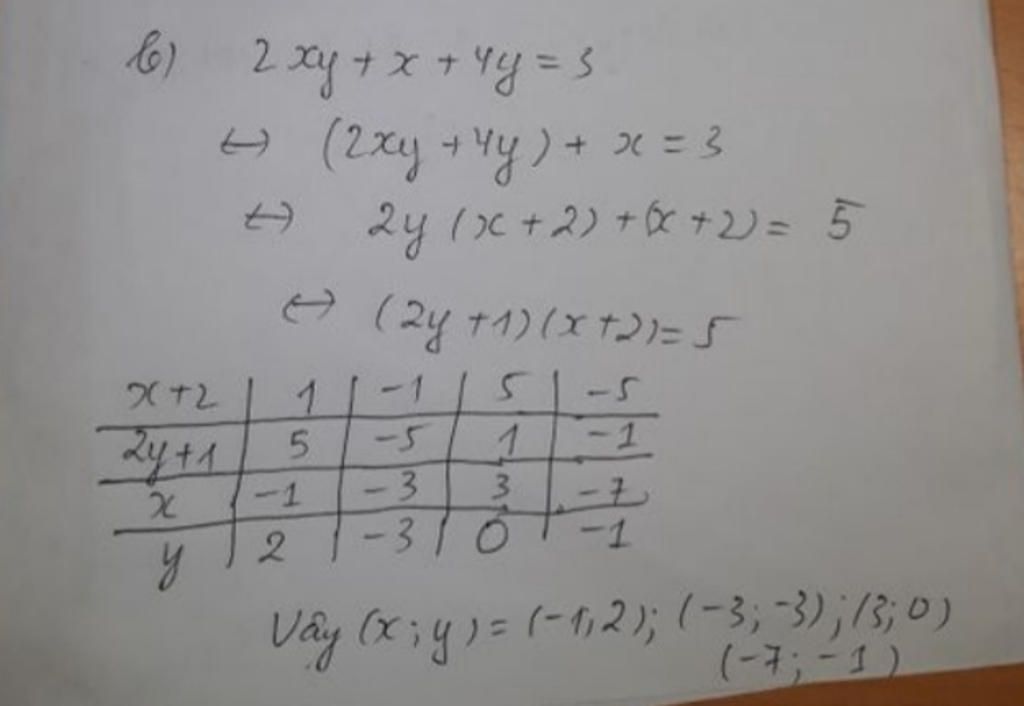 b) 2xy + x + 4y = 3
↔ (2xy + 4y) + x = 3
↔ 2y (x + 2) + (x + 2) = 5
↔ (2y + 1) (x + 2) = 5
x + 2 | 1 | -1 | 5 | -5
2y + 1 | 5 | -5 | 1 | -1
x | -1 | -3 | 3 | -7
y | 2 | -3 | 0 | -1
Vây (x ; y) = (-1; 2); (-3; -3); (3; 0)
(-7; -1)